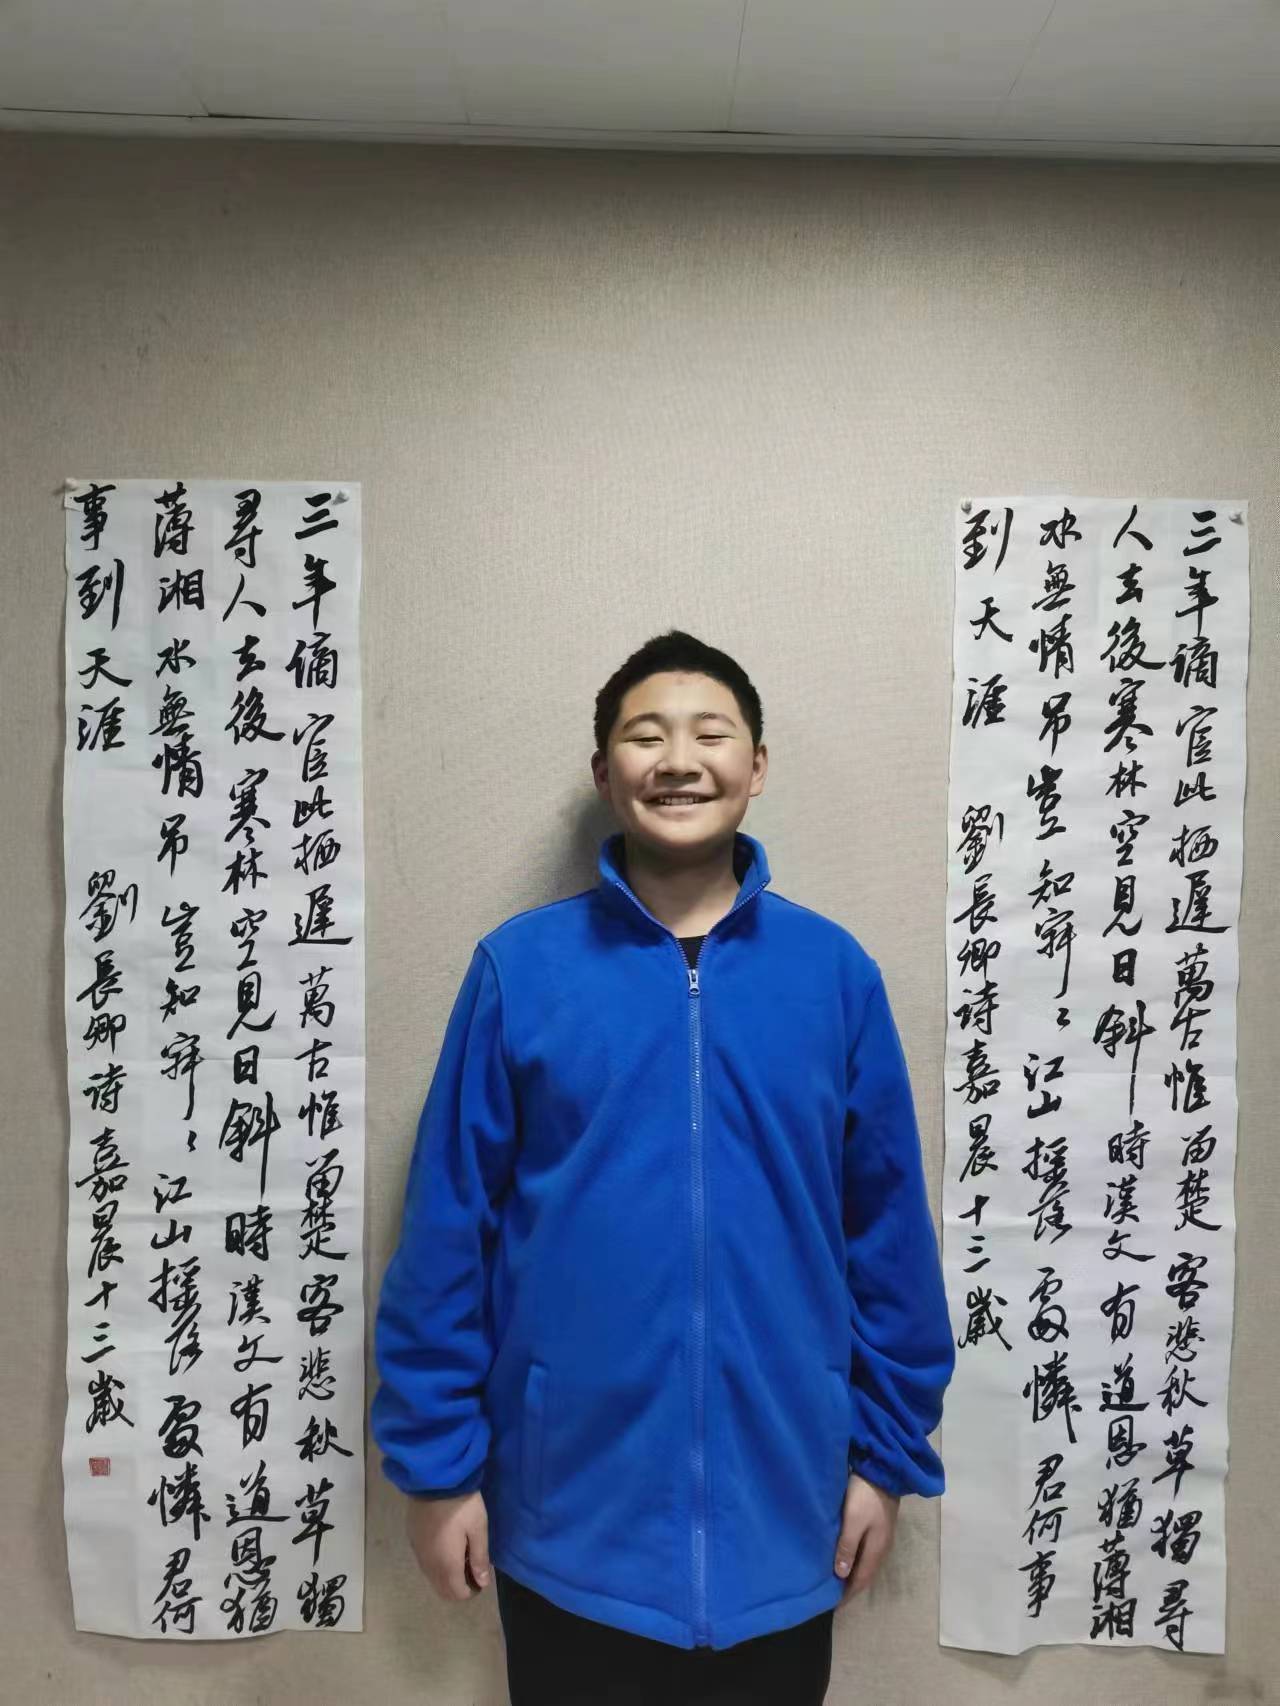 三年謫宦此栖遲萬古惟留楚客悲秋草獨
尋人去後寒林空見日斜時漢文有道恩猶
薄湘水無情吊豈知寂〻江山摇落處憐君何
事到天涯 劉長卿詩嘉晨十三歲
三年謫宦此栖遲萬古惟留楚客悲秋草獨尋
人去後寒林空見日斜時漢文有道恩猶薄湘
水無情吊豈知寂〻江山摇落處憐君何事
到天涯 劉長卿詩嘉晨十三歲